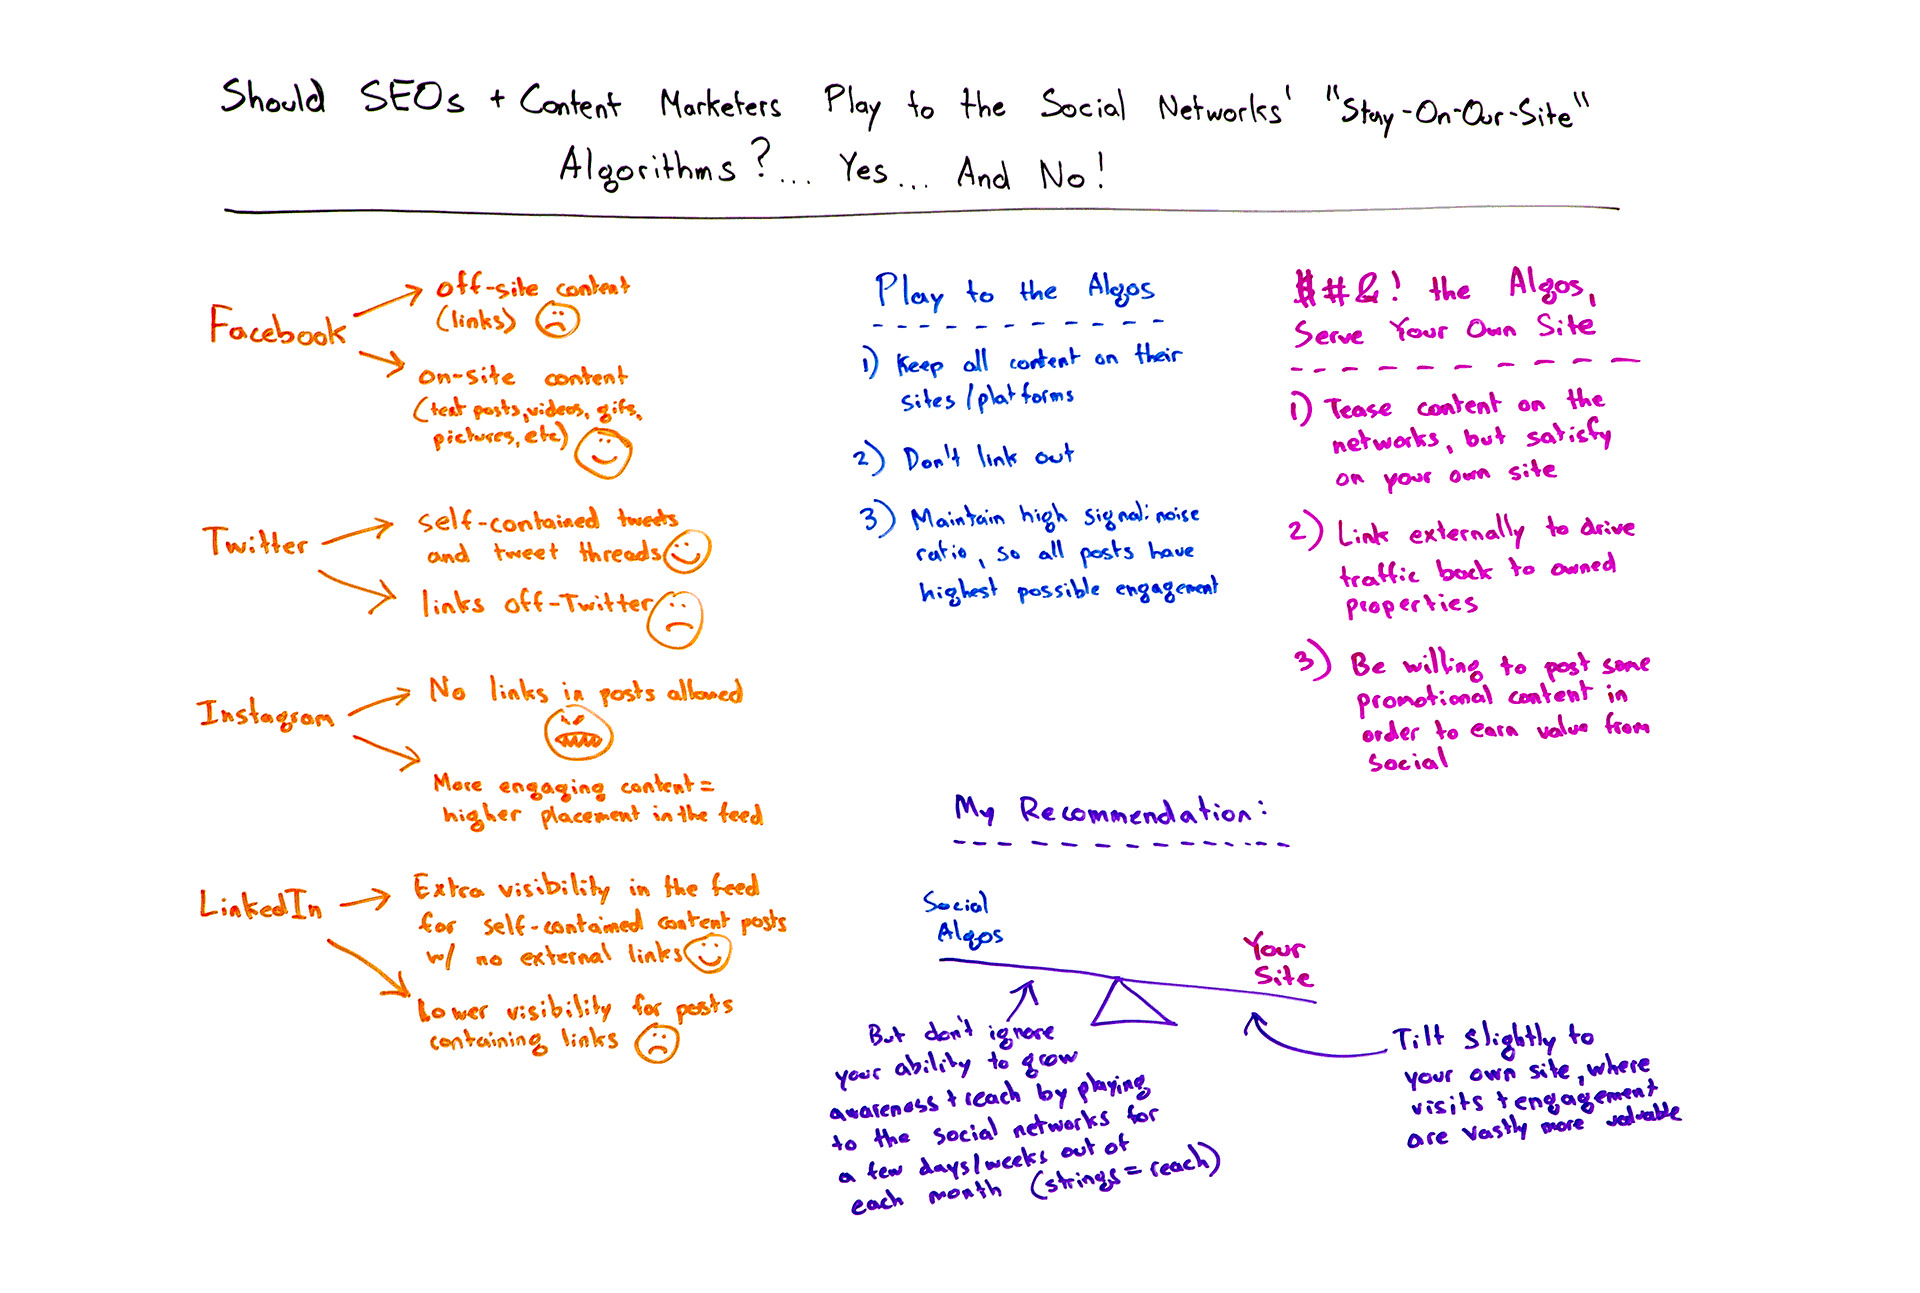 Should SEOs + Content Marketers Play to the Social Networks' "Stay-On-Our-Site"
Algorithms?... Yes... And No!
Facebook
off-site content
(links)
on-site content
(text posts, videos, gifs,
pictures, etc)
Twitter
self-contained tweets
and tweet threads
links off-Twitter
Instagram
No links in posts allowed
More engaging content =
higher placement in the feed
LinkedIn
Extra visibility in the feed
for self-contained content posts
w/ no external links
Lower visibility for posts
containing links
Play to the Algos
1) Keep all content on their
sites/platforms
2) Don't link out
3) Maintain high signal:noise
ratio, so all posts have
highest possible engagement
$#&! the Algos,
Serve Your Own Site
1) Tease content on the
networks, but satisfy
on your own site
2) Link externally to drive
traffic back to owned
properties
3) Be willing to post some
promotional content in
order to earn value from
social
My Recommendation:
Social
Algos
Your
Site
But don't ignore
your ability to grow
awareness + reach by playing
to the social networks for
a few days/weeks out of
each month (strings = reach)
Tilt slightly to
your own site, where
visits + engagement
are vastly more valuable